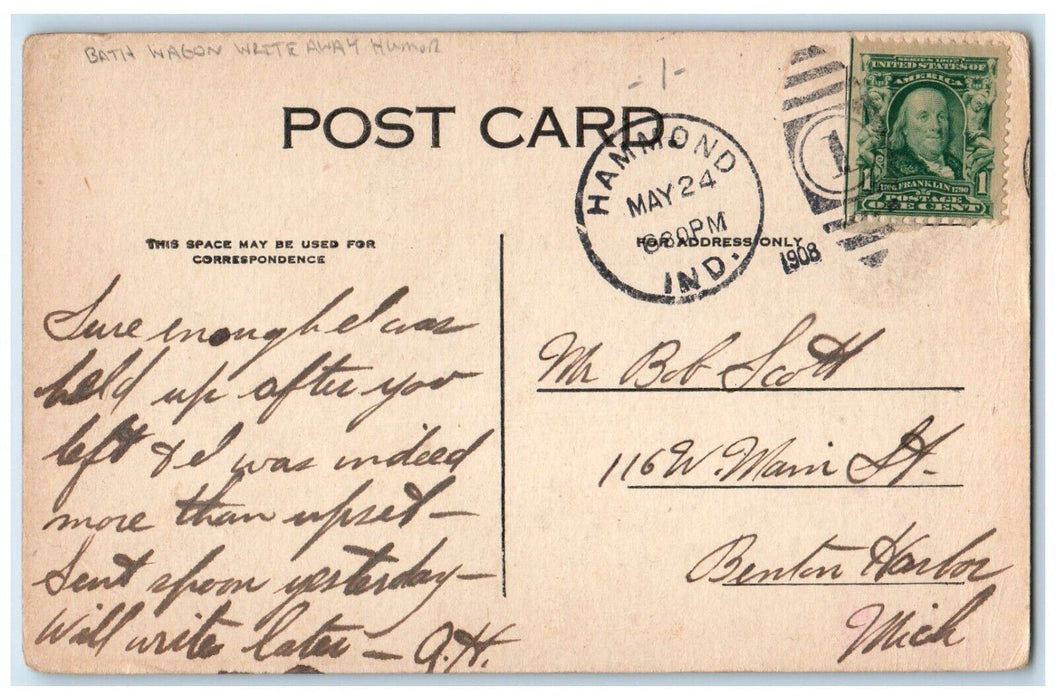 BATH WAGON WRITE AWAY HUMOR
-1-
POST CARD.
HAMMOND
MAY 24
630PM
IND.
1908
1
SERIES 1902
UNITED STATES OF
AMERICA
1706 FRANKLIN 1790
1 1
POSTAGE
ONE CENT
THIS SPACE MAY BE USED FOR
CORRESPONDENCE
FOR ADDRESS ONLY
Sure enough I was
held up after you
left & I was indeed
more than upset —
Sent spoon yesterday —
Will write later — A.H.
Mr Bob Scott
116 W. Main St.
Benton Harbor
Mich